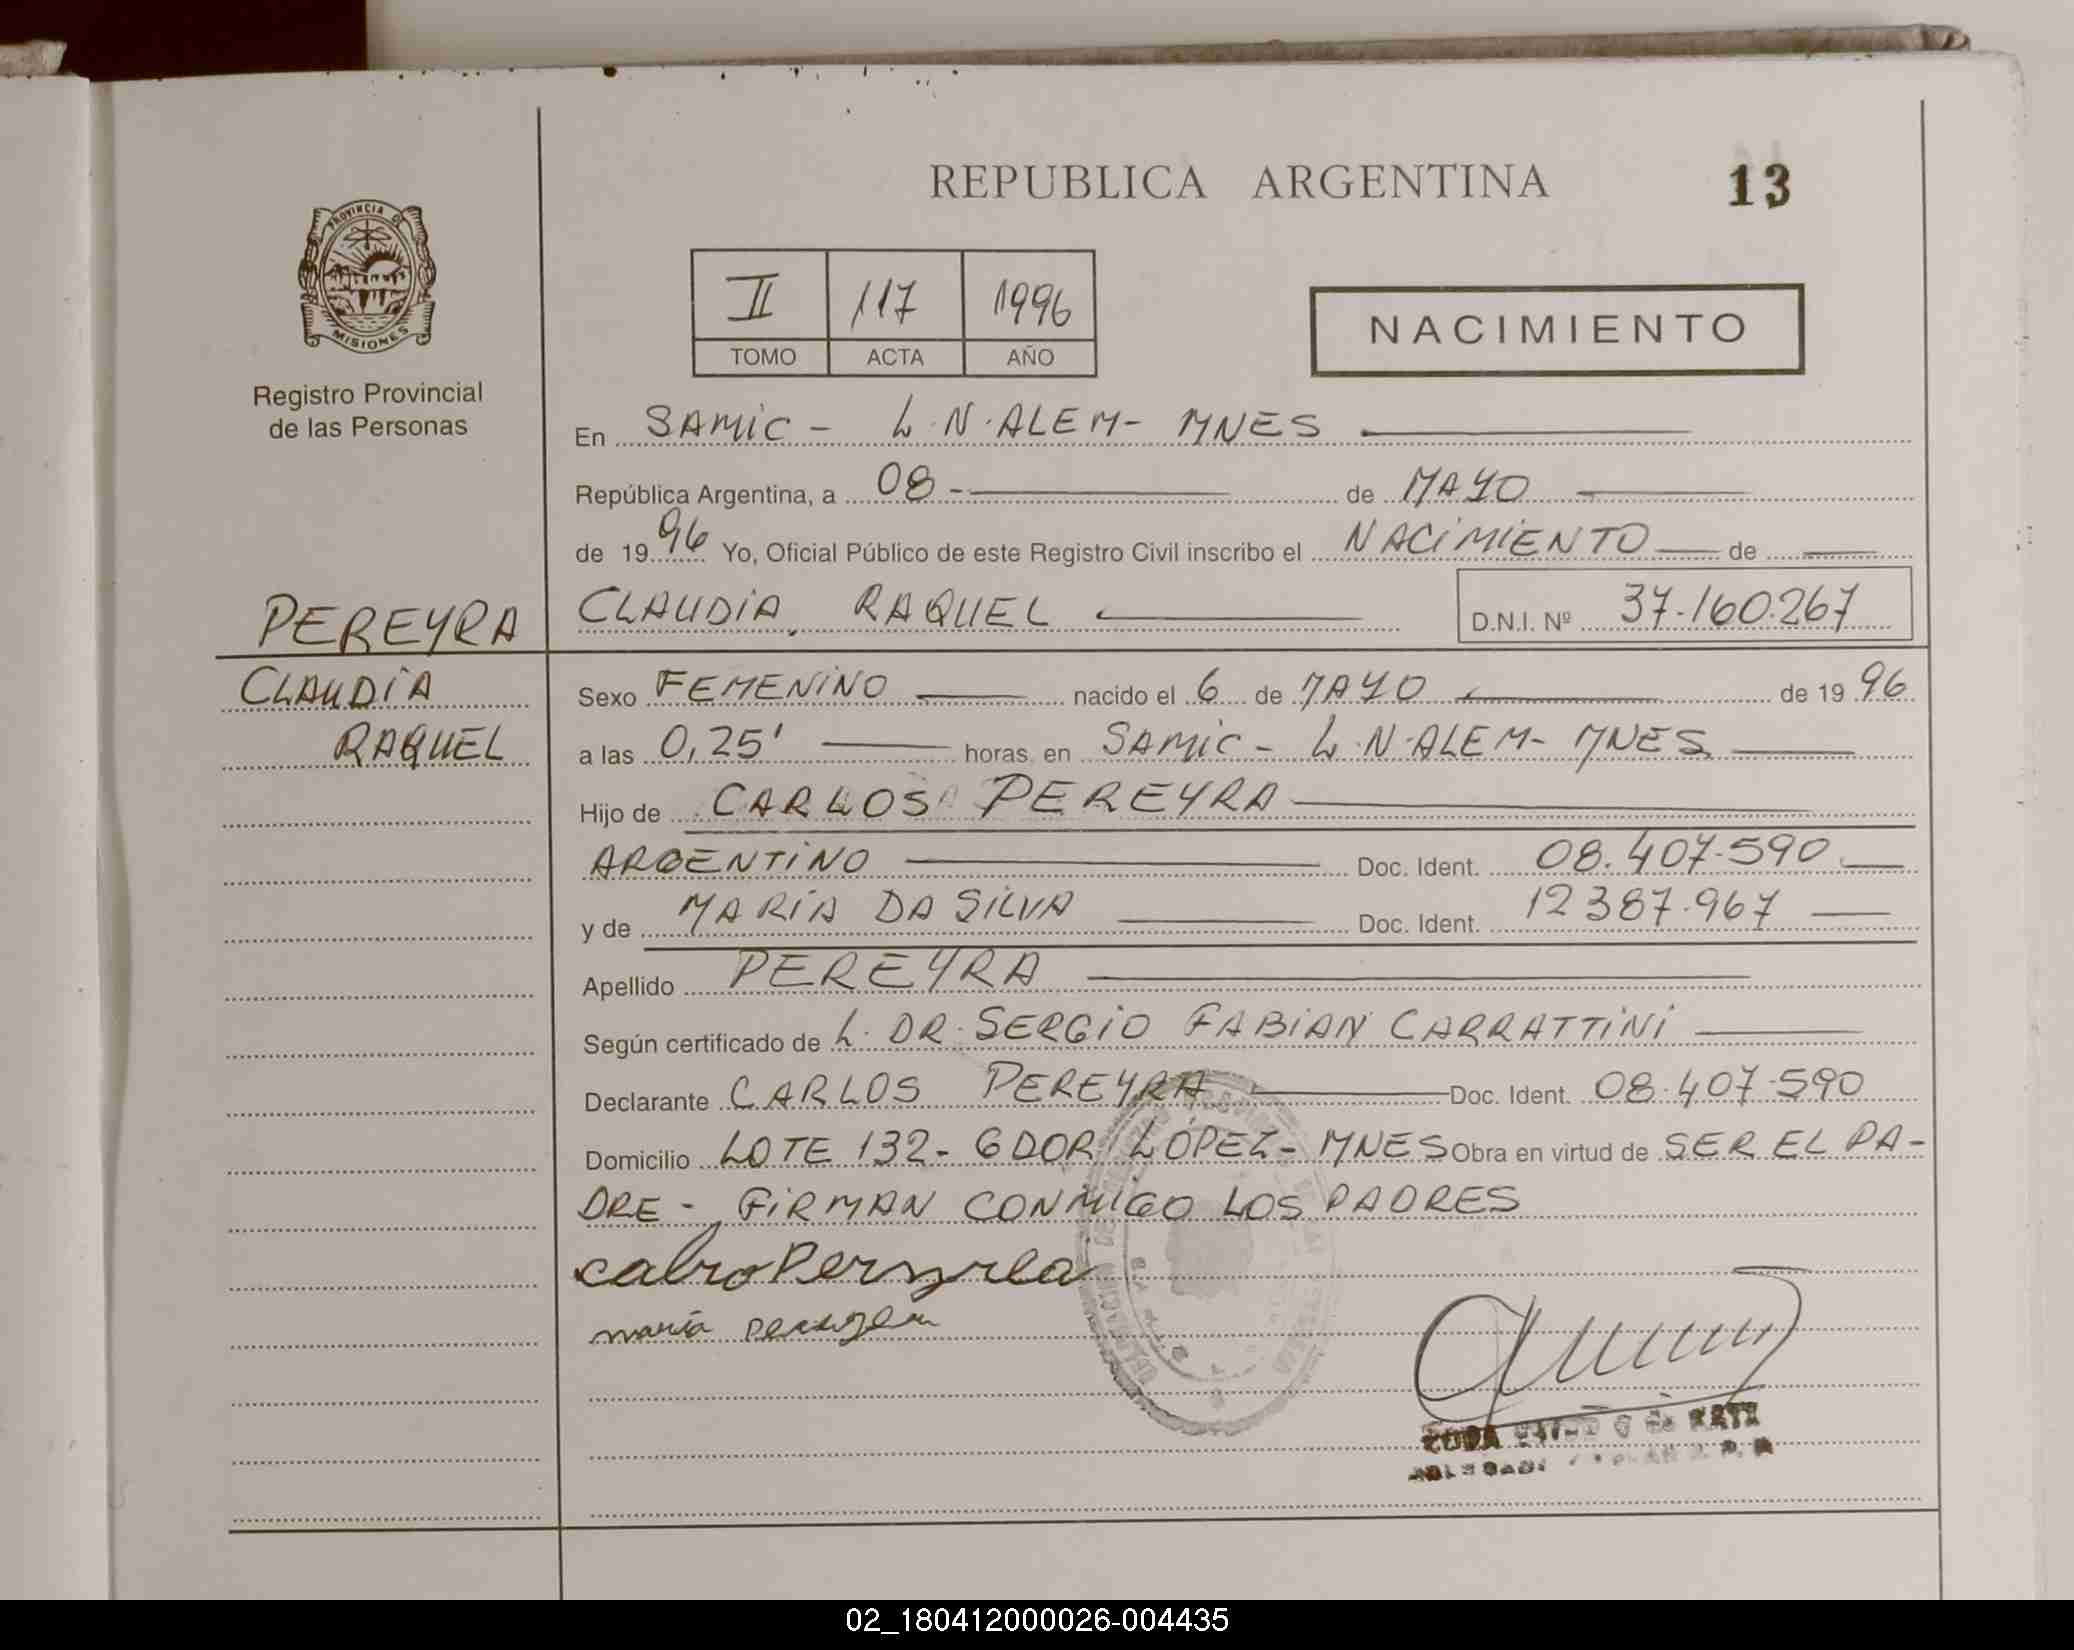 REPUBLICA ARGENTINA
13
PROVINCIA DE
MISIONES
Registro Provincial
de las Personas
II 117 1996
TOMO ACTA AÑO
NACIMIENTO
En SAMIC - L.N.ALEM - MNES
República Argentina, a 08 - de MAYO
de 1996 Yo, Oficial Público de este Registro Civil inscribo el NACIMIENTO de
PEREYRA
CLAUDIA RAQUEL
D.N.I. Nº 37.160.267
CLAUDIA
RAQUEL
Sexo FEMENINO nacido el 6 de MAYO de 1996
a las 0,25' horas, en SAMIC - L.N.ALEM - MNES
Hijo de CARLOS PEREYRA
ARGENTINO Doc. Ident. 08.407.590
y de MARIA DA SILVA Doc. Ident. 12387.967
Apellido PEREYRA
Según certificado de L. DR. SERGIO FABIAN CARRATTINI
Declarante CARLOS PEREYRA Doc. Ident. 08.407.590
Domicilio LOTE 132 - GDOR LOPEZ - MNES Obra en virtud de SER EL PA-
DRE - FIRMAN CONMIGO LOS PADRES
maria
02_180412000026-004435